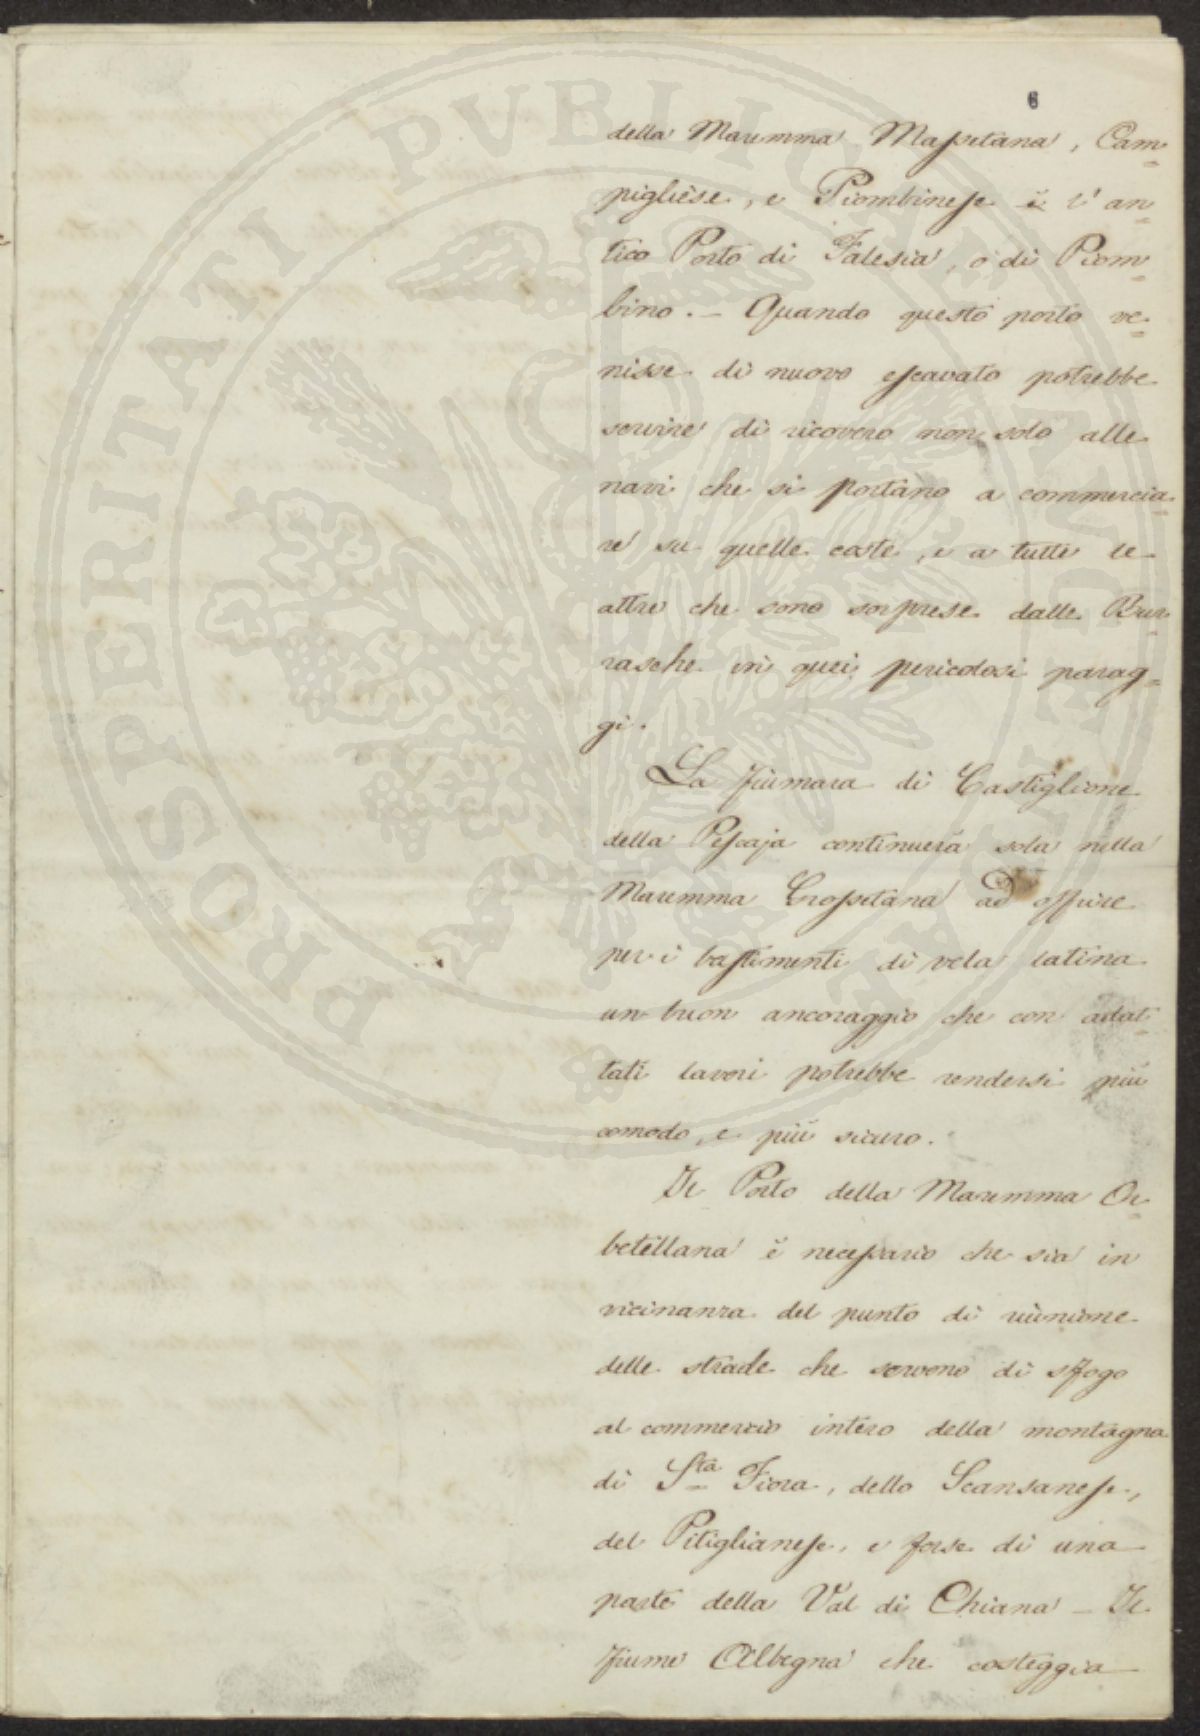 6
della Maremma Massetana, Cam=
pigliese, e Piombinese è l'an=
tico Porto di Falesia, o di Piom=
bino. — Quando questo porto ve=
nisse di nuovo escavato potrebbe
servire di ricovero non solo alle
navi che si portano a commercia=
re su quelle coste, e a tutte le
altre che sono sorprese dalle Bur=
rasche in quei pericolosi parag=
gi.
La fiumara di Castiglione
della Pescaja continuerà sola nella
Maremma Grossetana ad offrire
per i bastimenti di vela latina
un buon ancoraggio che con adat=
tati lavori potrebbe rendersi più
comodo, e più sicuro.
Il Porto della Maremma Or=
betellana è necessario che sia in
vicinanza del punto di riunione
delle strade che servono di sfogo
al commercio intero della montagna
di Sta Fiora, dello Scansanese,
del Pitiglianese, e forse di una
parte della Val di Chiana — Il
fiume Albegna che costeggia
PROSPERITATI PUBLICAE AUGENDAE